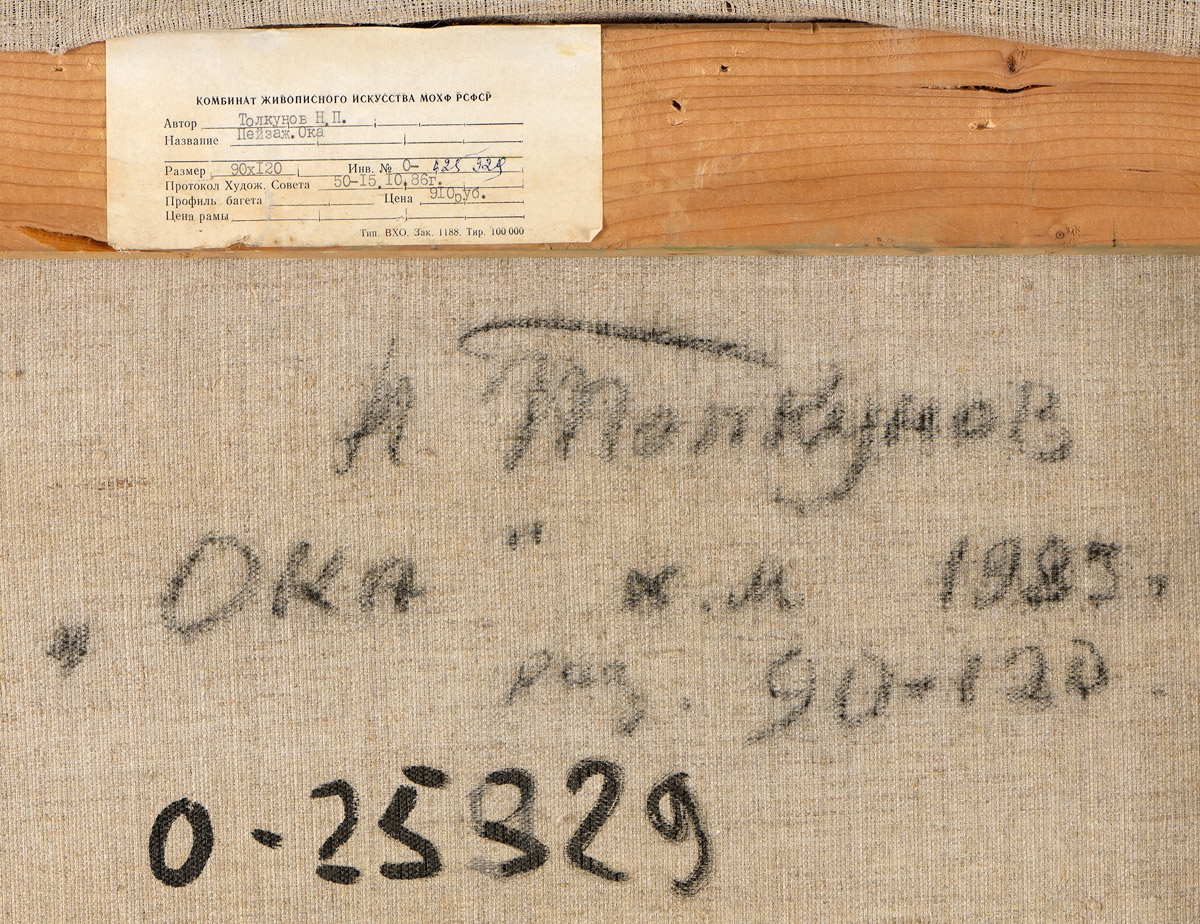 КОМБИНАТ ЖИВОПИСНОГО ИСКУССТВА МОХФ РСФСР
Автор Толкунов Н.П.
Название Пейзаж.Ока
Размер 90х120 Инв. № 0-
Протокол Худож. Совета 50-15.10.86г.
Профиль багета Цена 910руб.
Цена рамы
Тип. ВХО. Зак. 1188. Тир. 100 000
Толкунов
„Ока" х.м 1985.
раз. 90-120.
0-25329